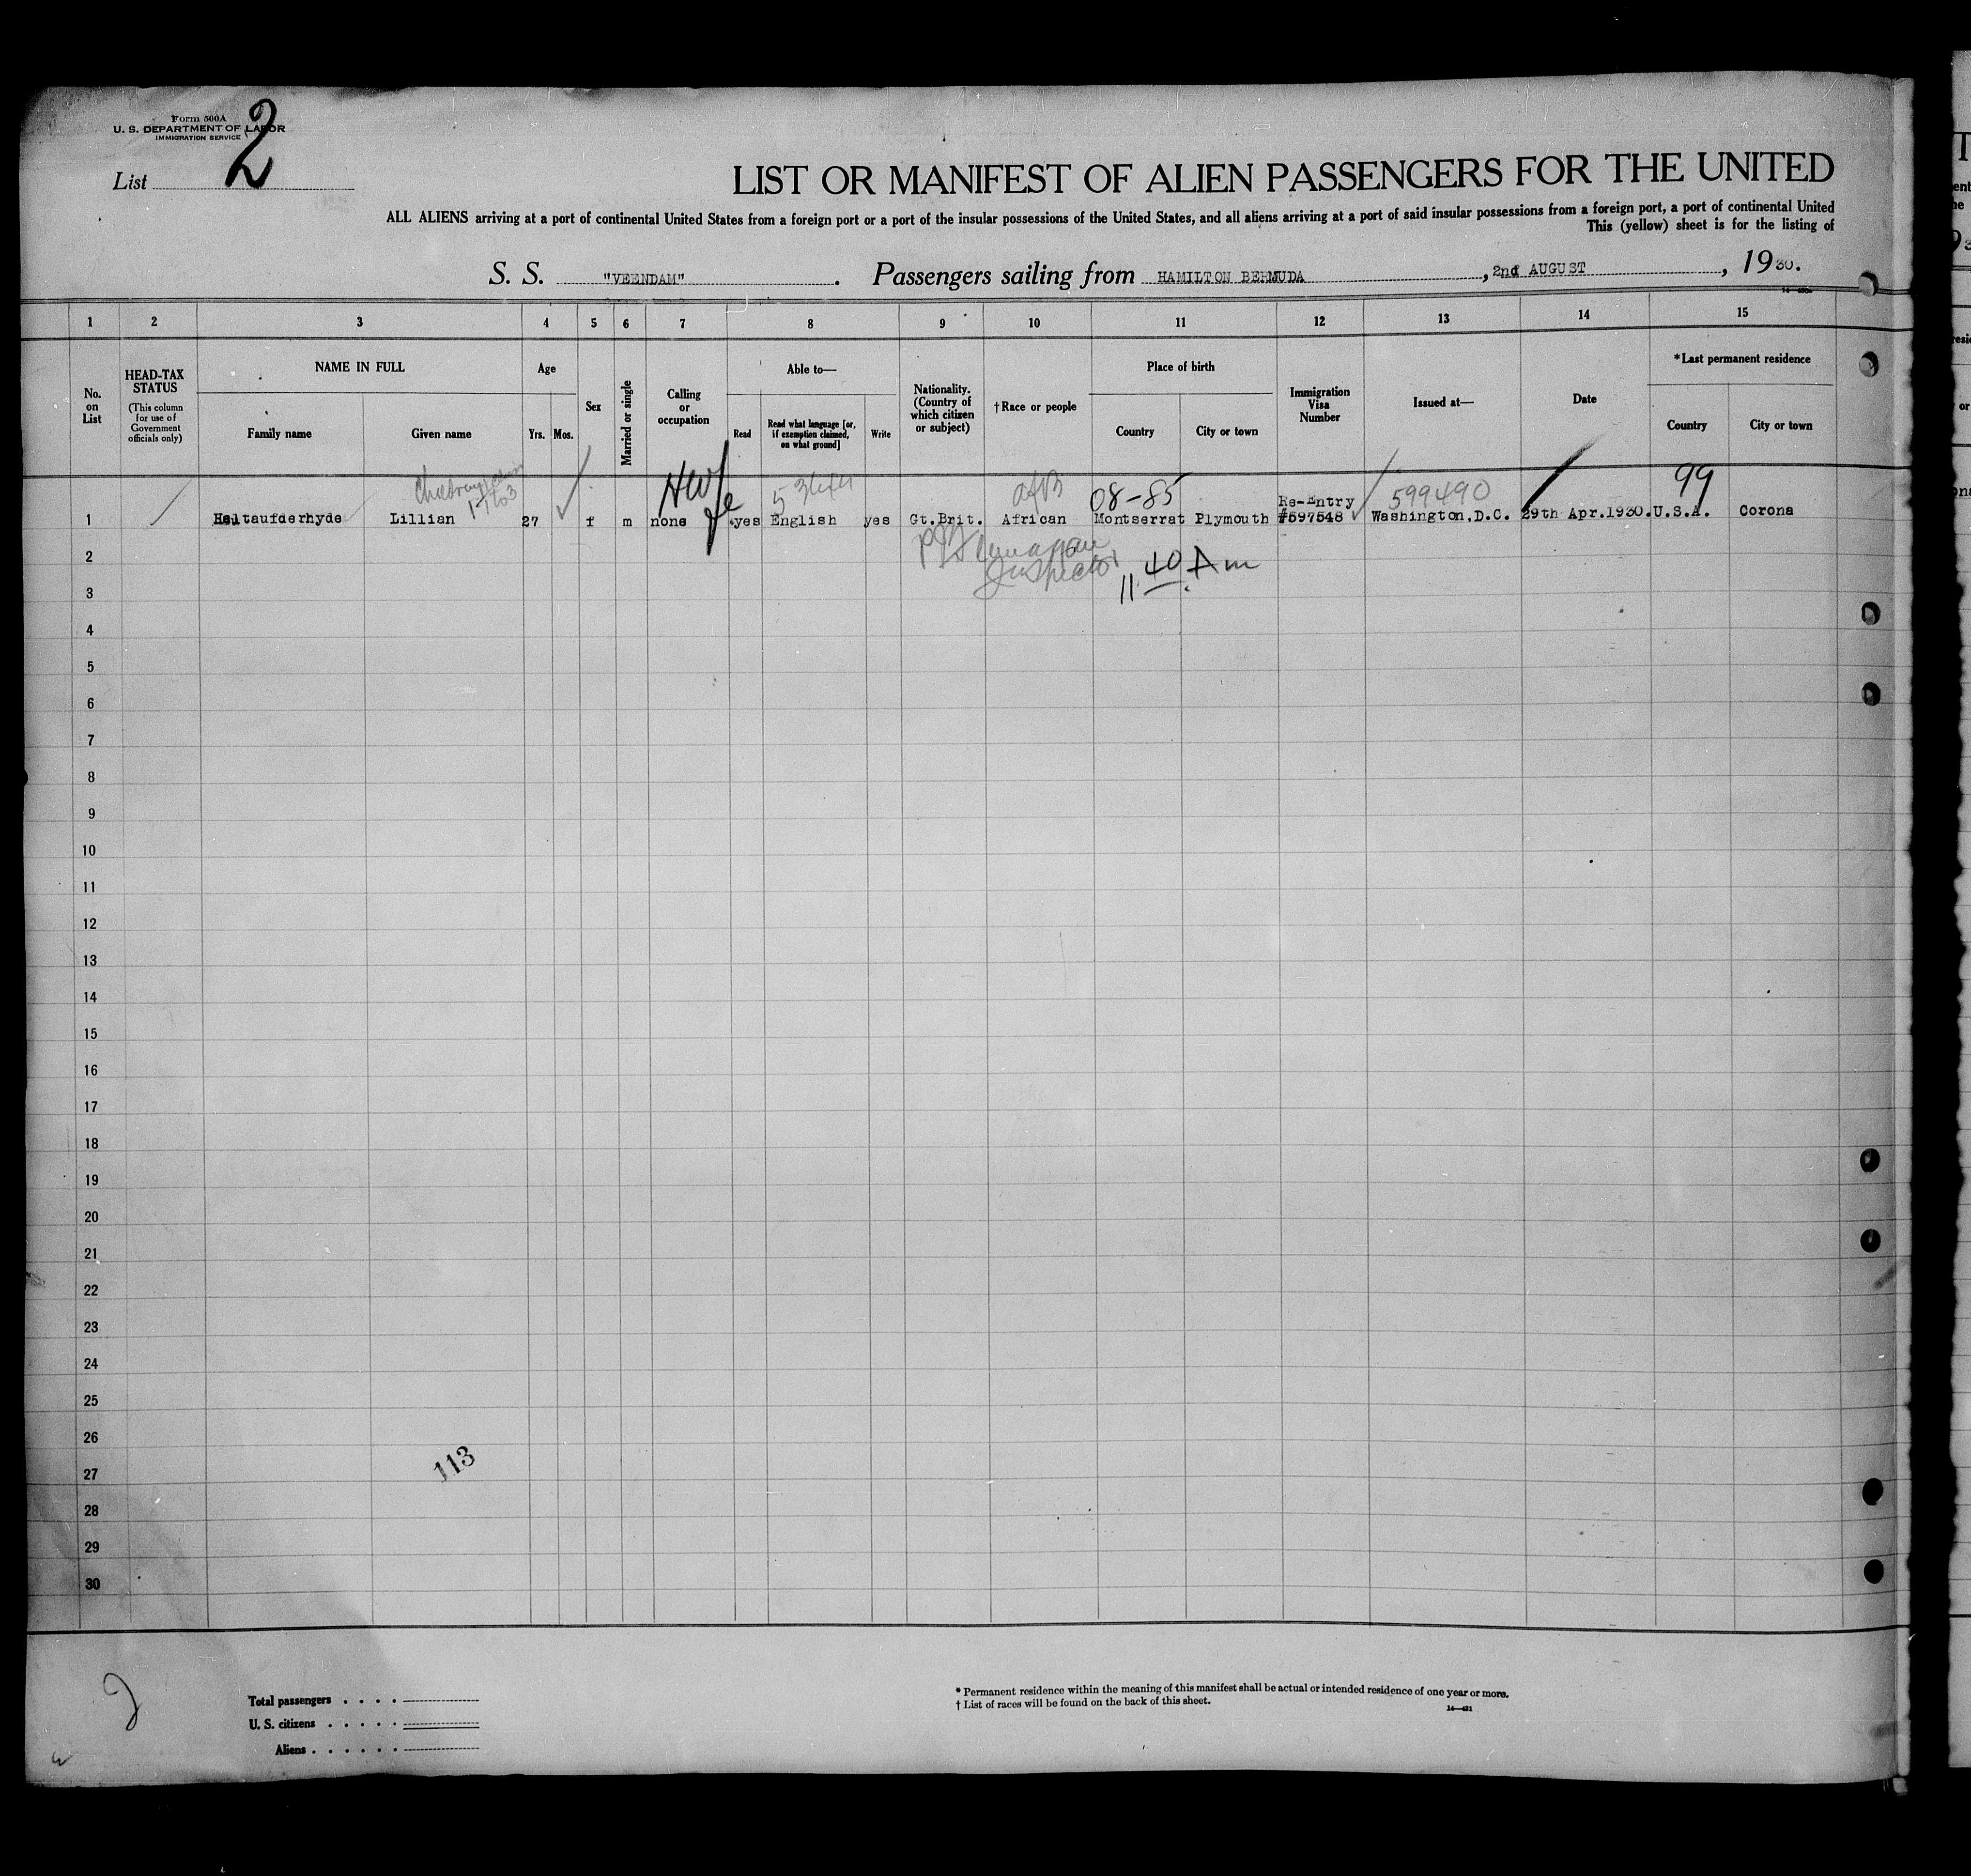 Form 500A
U. S. DEPARTMENT OF LABOR
IMMIGRATION SERVICE
List 2
LIST OR MANIFEST OF ALIEN PASSENGERS FOR THE UNITED
ALL ALIENS arriving at a port of continental United States from a foreign port or a port of the insular possessions of the United States, and all aliens arriving at a port of said insular possessions from a foreign port, a port of continental United
This (yellow) sheet is for the listing of
S. S. "VEENDAM". Passengers sailing from HAMILTON BERMUDA, 2nd AUGUST, 1930.
1 2 3 4 5 6 7 8 9 10 11 12 13 14 15
No. on List
HEAD-TAX STATUS
(This column for use of Government officials only)
NAME IN FULL
Family name Given name
Age
Yrs. Mos.
Sex
Married or single
Calling or occupation
Able to—
Read
Read what language [or, if exemption claimed, on what ground]
Write
Nationality. (Country of which citizen or subject)
†Race or people
Place of birth
Country City or town
Immigration Visa Number
Issued at—
Date
*Last permanent residence
Country City or town
HWfe 08-85 599490 99
Re-Entry
1 Heltaufderhyde Lillian 27 f m none yes English yes Gt.Brit. African Montserrat Plymouth #597548 Washington,D.C. 29th Apr.1930. U.S.A. Corona
Inspector 11.40 Am
2
3
4
5
6
7
8
9
10
11
12
13
14
15
16
17
18
19
20
21
22
23
24
25
26
27
28
29
30
113
2
Total passengers
U. S. citizens
Aliens
* Permanent residence within the meaning of this manifest shall be actual or intended residence of one year or more.
† List of races will be found on the back of this sheet.